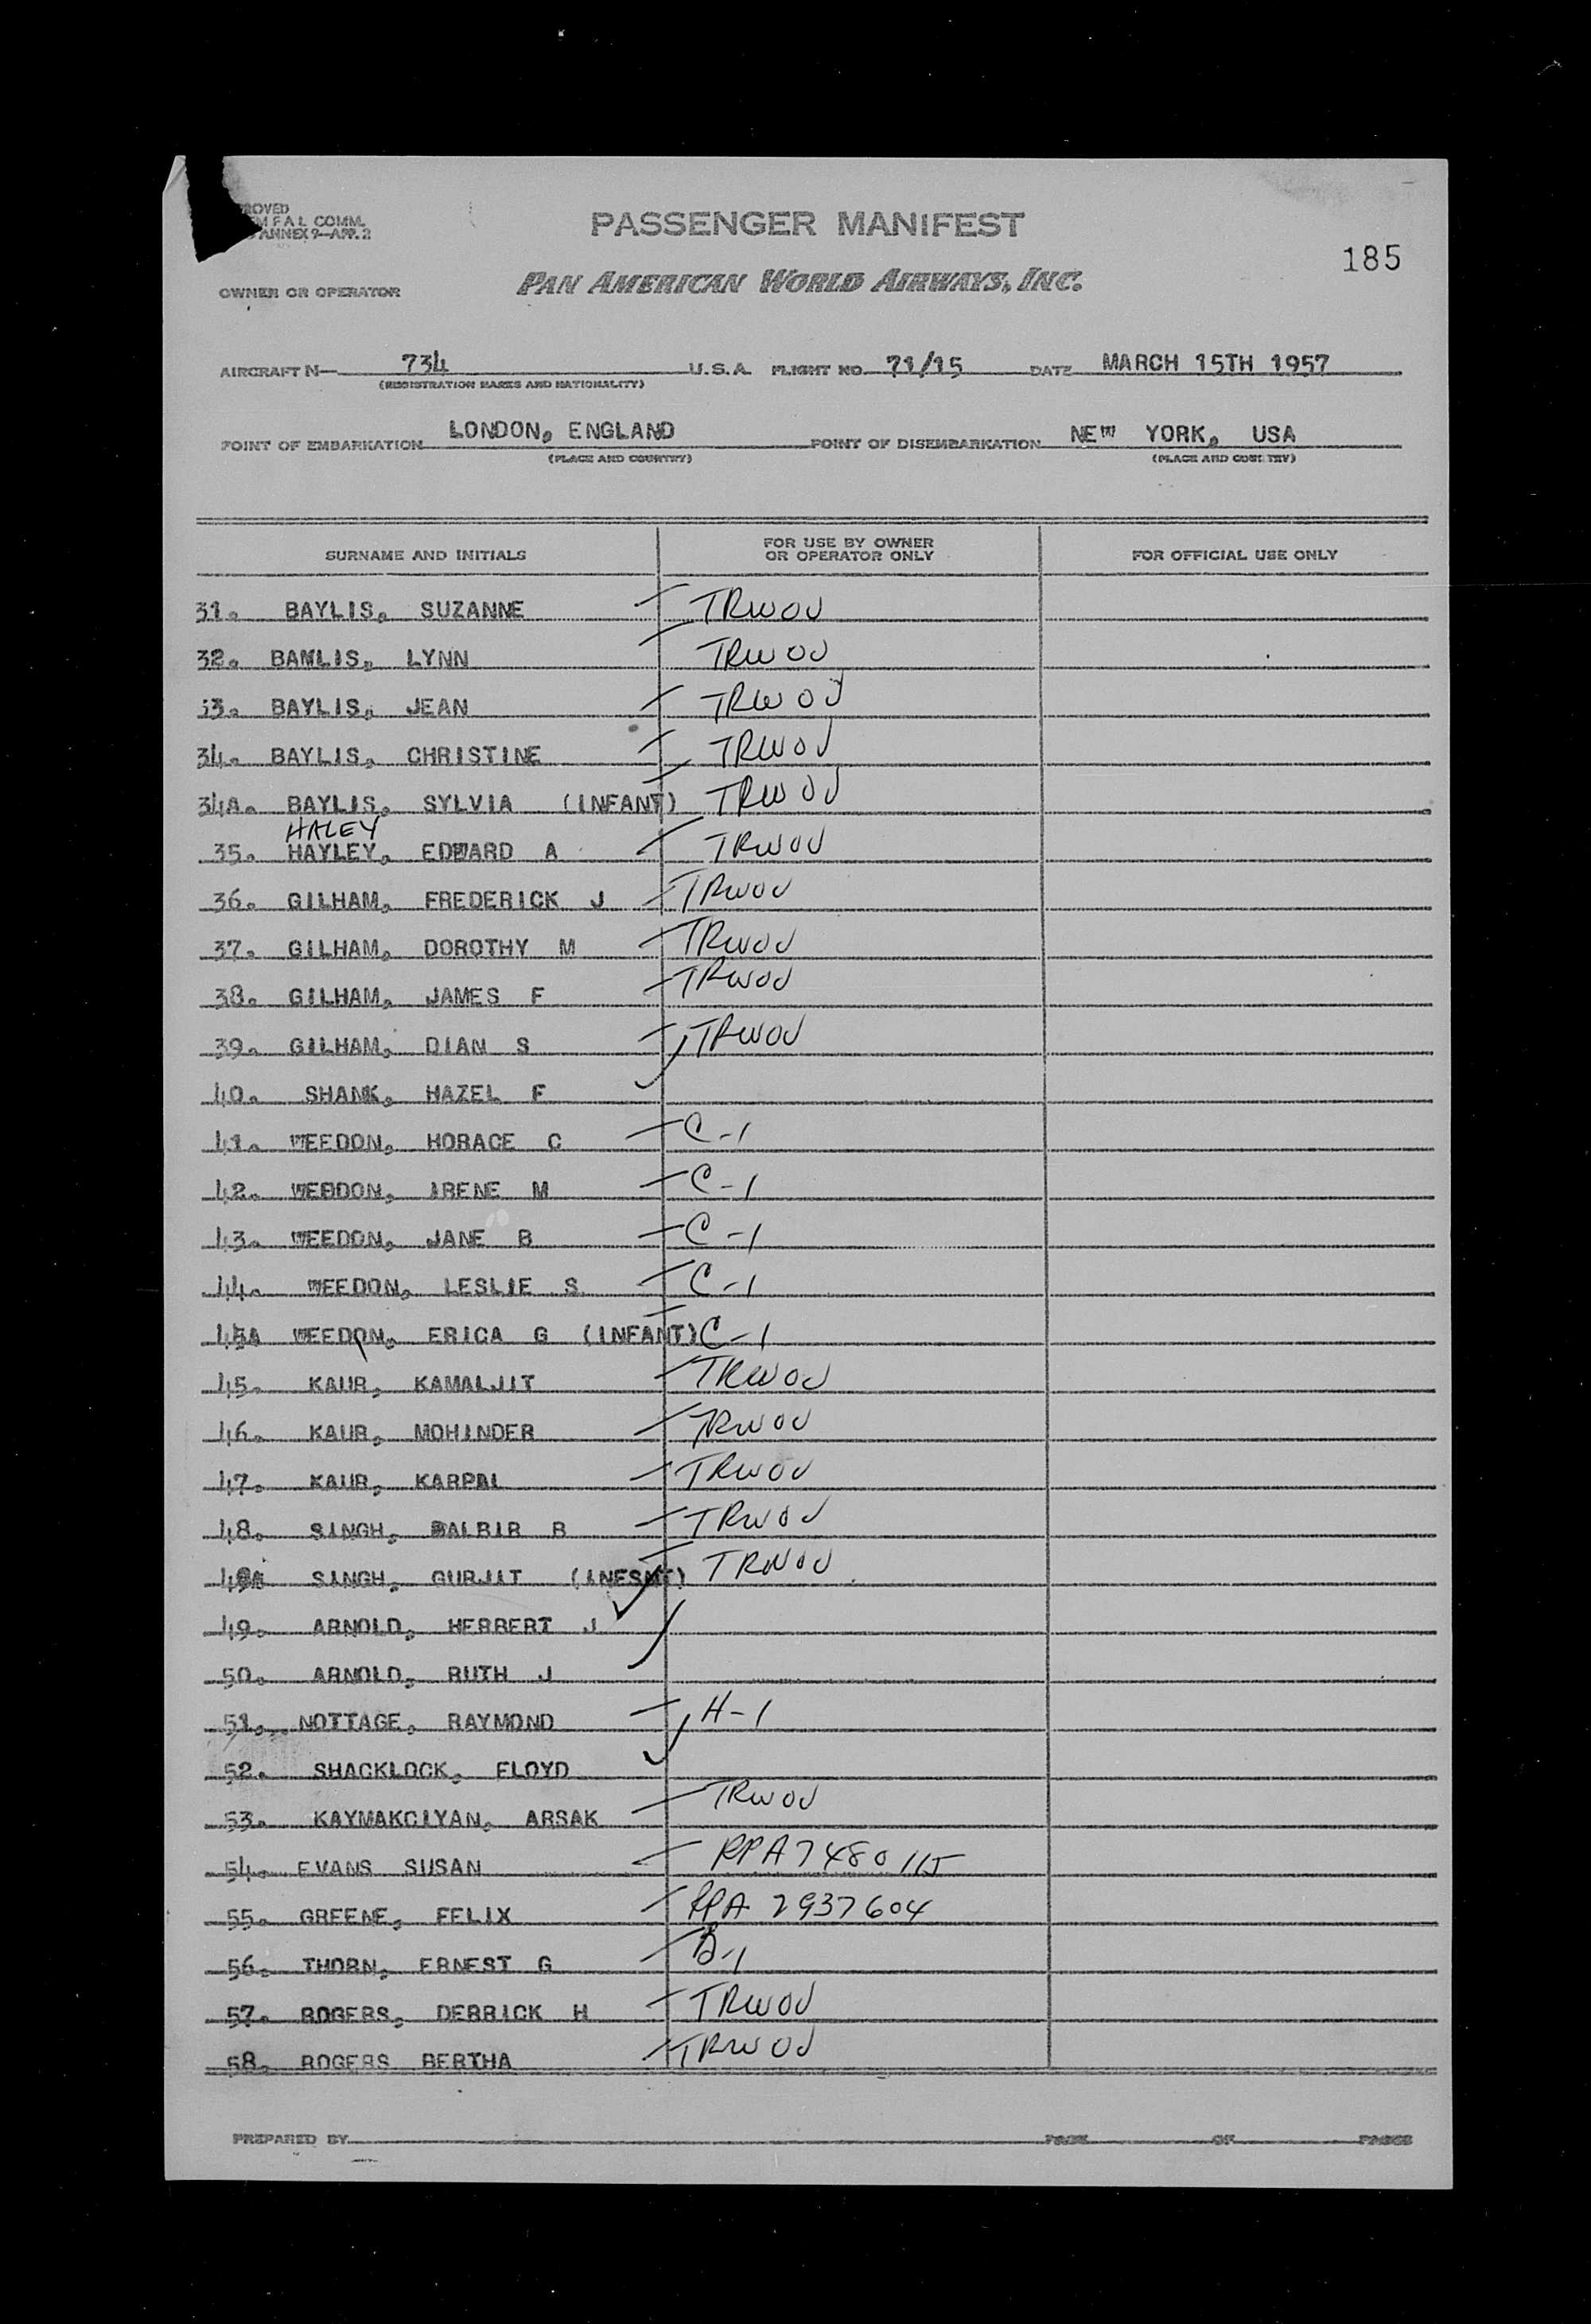 ROVED
M F A L COMM.
ANNEX 9—APP. 2
PASSENGER MANIFEST
185
OWNER OR OPERATOR
PAN AMERICAN WORLD AIRWAYS, INC.
AIRCRAFT N— 734 U.S.A. FLIGHT NO. 71/15 DATE MARCH 15TH 1957
(REGISTRATION MARKS AND NATIONALITY)
POINT OF EMBARKATION LONDON, ENGLAND POINT OF DISEMBARKATION NEW YORK, USA
(PLACE AND COUNTRY) (PLACE AND COUNTRY)
SURNAME AND INITIALS FOR USE BY OWNER OR OPERATOR ONLY FOR OFFICIAL USE ONLY
31. BAYLIS, SUZANNE TRWOV
32. BAMLIS, LYNN TRWOV
33. BAYLIS, JEAN TRWOV
34. BAYLIS, CHRISTINE TRWOV
34A. BAYLIS, SYLVIA (INFANT) TRWOV
HALEY
35. HAYLEY, EDWARD A TRWOV
36. GILHAM, FREDERICK J TRWOV
37. GILHAM, DOROTHY M TRWOV
38. GILHAM, JAMES F TRWOV
39. GILHAM, DIAN S TRWOV
40. SHANK, HAZEL F
41. WEEDON, HORACE C C-1
42. WEDDON, IRENE M C-1
43. WEEDON, JANE B C-1
44. WEEDON, LESLIE S C-1
45A WEEDON, ERICA G (INFANT) C-1
45. KAUR, KAMALJIT TRWOV
46. KAUR, MOHINDER TRWOV
47. KAUR, KARPAL TRWOV
48. SINGH, DALBIR B TRWOV
48A SINGH, GURJIT TRWOV
49. ARNOLD, HERBERT J
50. ARNOLD, RUTH J
51. NOTTAGE, RAYMOND H-1
52. SHACKLOCK, FLOYD
53. KAYMAKCIYAN, ARSAK TRWOV
54. EVANS SUSAN RPA7480115
55. GREENE, FELIX RPA 2937604
56. THORN, ERNEST G B-1
57. ROGERS, DERRICK H TRWOV
58. ROGERS BERTHA TRWOV
PREPARED BY PAGE OF PAGES